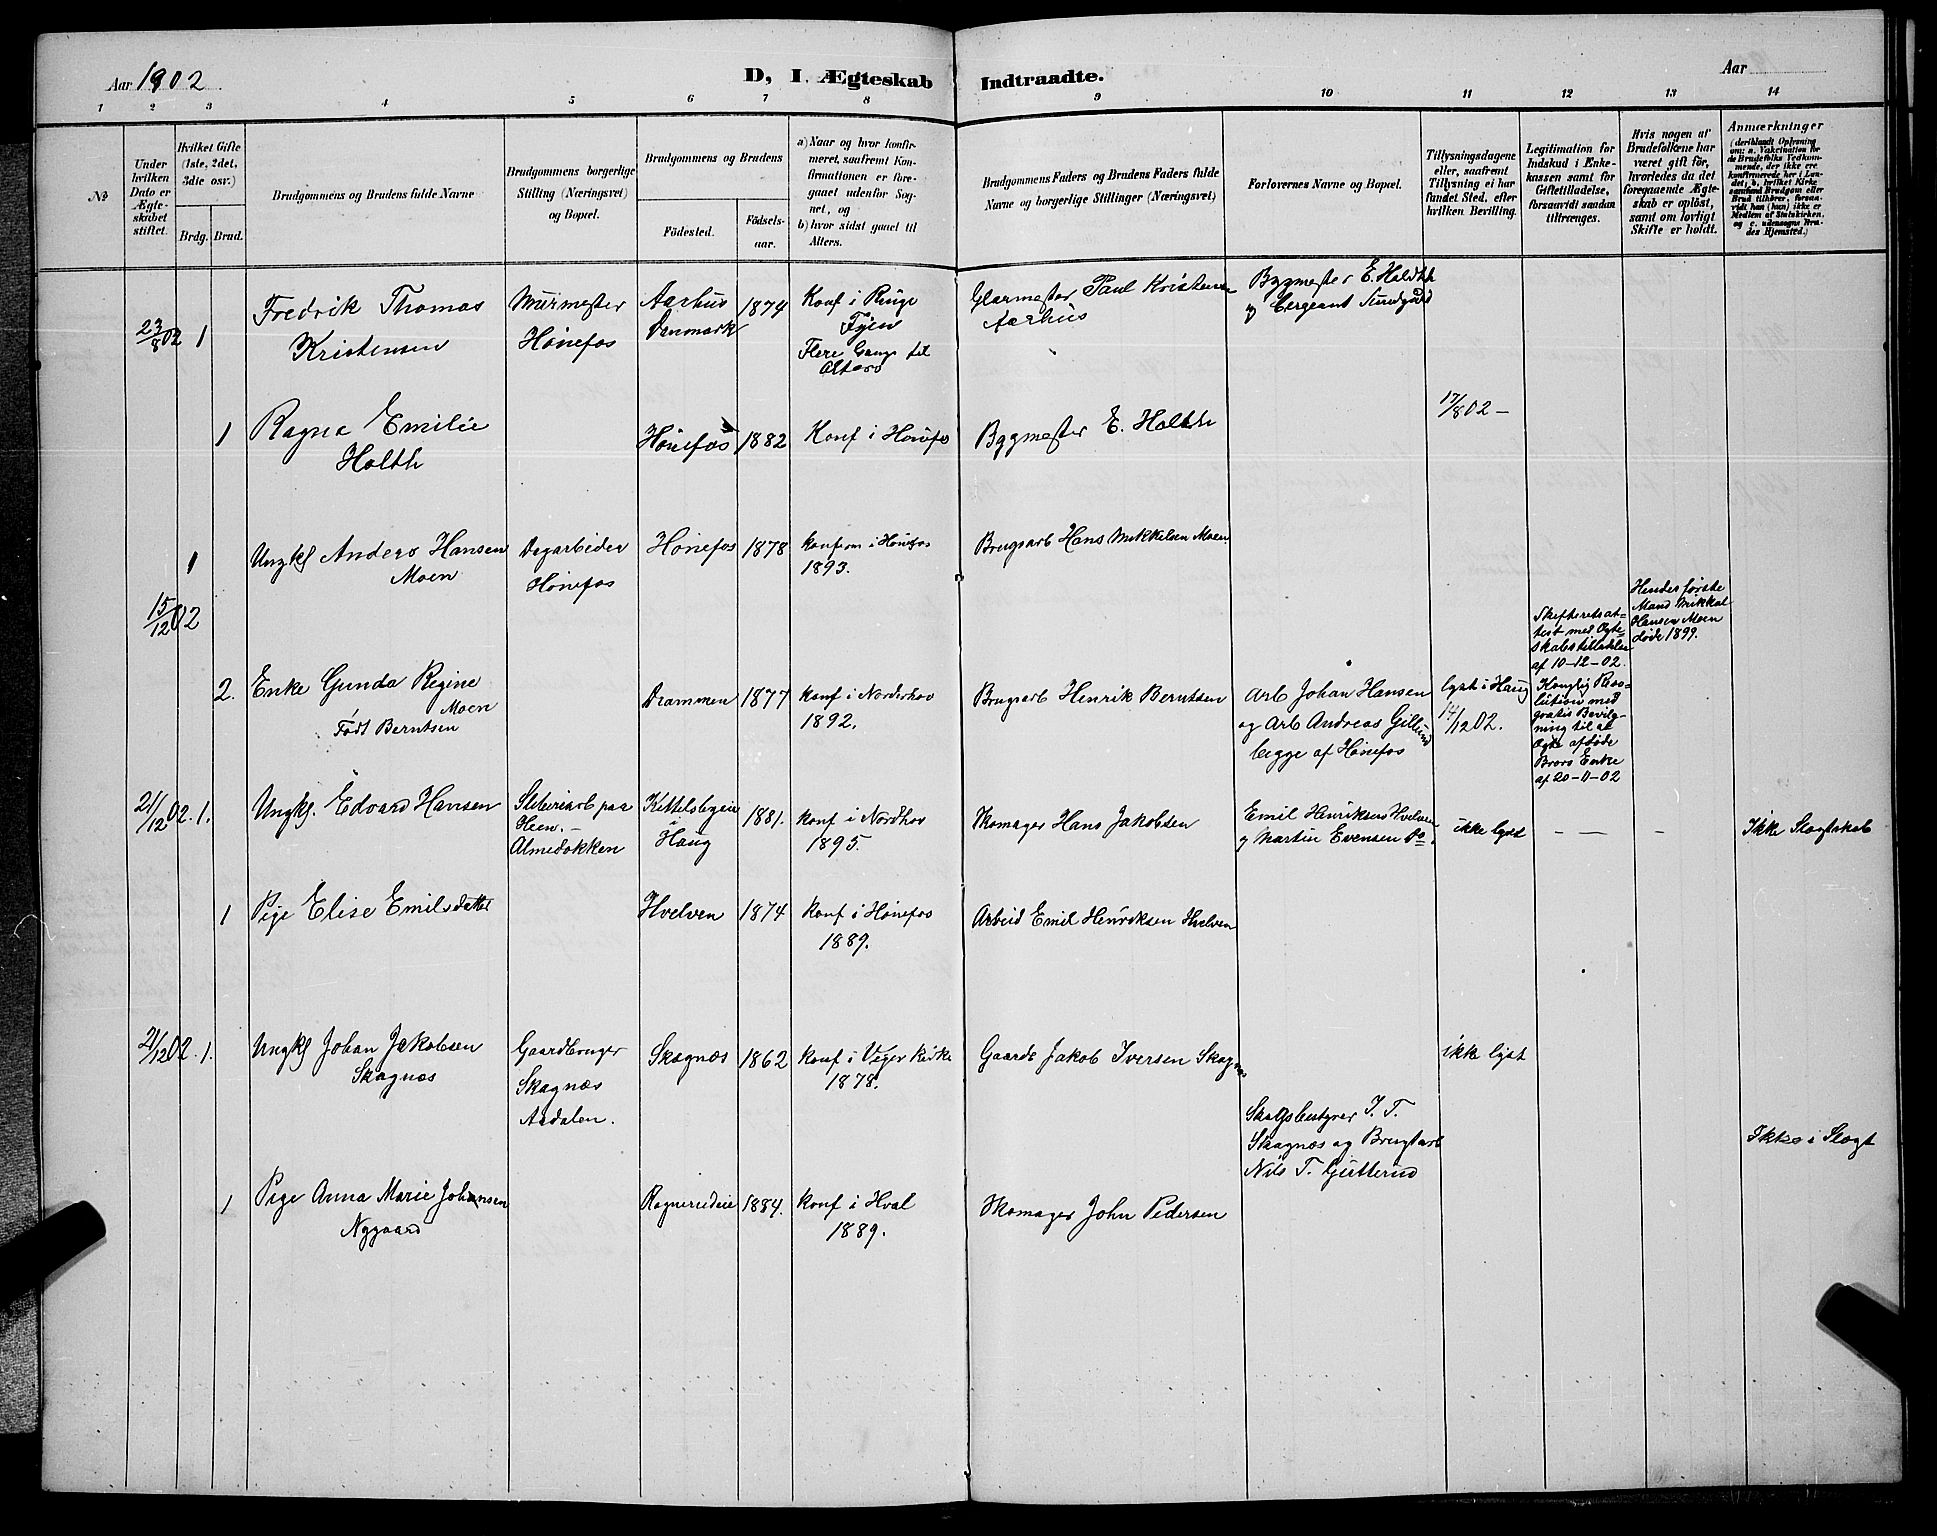 Aar 1902
D, I. Ægteskab Indtraadte.
Aar
1 2 3 4 5 6 7 8 9 10 11 12 13 14
No
Under
hvilken
Dato er
Ægte-
skabet
stiftet.
Hvilket Gifte
(1ste, 2det,
3die osv.)
Brdg. Brud.
Brudgommens og Brudens fulde Navne
Brudgommens borgerlige
Stilling (Næringsvei)
og Bopæl.
Brudgommens og Brudens
Fødested.
Fødsels-
aar.
a) Naar og hvor konfir-
meret, saafremt Kon-
firmationen er fore-
gaaet udenfor Sog-
net, og
b) hvor sidst gaaet til
Alters.
Brudgommens Faders og Brudens Faders fulde
Navne og borgerlige Stillinger (Næringsvei)
Forlovernes Navne og Bopæl.
Tillysningsdagene
eller, saafremt
Tillysning ei har
fundet Sted, efter
hvilken Bevilling.
Legitimation for
Indskud i Enke-
kassen samt for
Giftetilladelse,
forsaavidt saadan
tiltrænges.
Hvis nogen af
Brudefolkene har
været gift før,
hvorledes da det
foregaaende Ægte-
skab er opløst,
samt om lovligt
Skifte er holdt.
Anmærkninger
(deriblandt Oplysning
om: a. Vakcination for
de Brudefolks Vedkom-
mende, der ikke ere
konfirmerede her i Lan-
det, b. hvilket Kirke-
samfund Brudgom eller
Brud tilhører, forsaa-
vidt han (hun) ikke er
Medlem af Statskirken,
og c. udensogns Bru-
des Hjemsted.)
23/8 02 1
Fredrik Thomas
Kristensen
Murmester
Hønefos
Aarhus
Danmark
1874
Konf i Ringe
Fyen
Flere Gange til
Alters
Glarmester Paul Kristensen
Aarhus
Bygmester E. Holdth
og Sergeant Sundgård
1
Ragna Emilie
Holth
Hønefos
1882
Konf i Hønefos
Bygmester E. Holth
17/8 02 –
15/12 02
1
Ungkl Anders Hansen
Moen
Dagarbeider
Hønefos
Hønefos
1878
konfirm i Hønefos
1893.
Brugsarb Hans Mikkelsen Moen
2.
Enke Gunda Regine
Moen
Født Berntsen
Drammen
1877
konf i Norderhov
1892.
Brugsarb Henrik Berntsen
Arb Johan Hansen
og Arb Andreas Gillund
begge af Hønefos
lyst i Haug
14/12 02.
Skifteretsat-
test med Ægte-
skabstilladelse
af 10-12-02.
Konglig Reso-
lution med
gratis Bevilg-
ning til at
ægte afdøde
Brors Enke
af 20-11-02
Hendes første
Mand Mikkal
Hansen Moen
døde 1899.
21/12 02. 1.
Ungkl. Edvard Hansen
Sliberiarb paa
Heen. –
Almedokken
Kittelsbyeie
i
Haug
1881.
konf i Nordhov
1895.
Skomager Hans Jakobsen
Emil Henriksen Hvelven
og Martin Evensen Do.
ikke lyst
– – –
Ikke Slegtskab
1
Pige Elise Emilsdatter
Hvelven
1874
konf i Hønefos
1889.
Arbeid Emil Henriksen Hvelven
21/12 02. 1.
Ungkl Johan Jakobsen
Skagnæs
Gaardbruger
Skagnæs
Aadalen.
Skagnæs
1862
konf i Viger Kirke
1878.
Gaardb Jakob Iversen Skagnæs
Skogsbestyrer I. T.
Skagnæs og Brugsarb
Nils T. Gutterud
ikke lyst
Ikke i Slegt
1
Pige Anna Marie Johansen
Nygaard
1884.
konf i Hval
1889.
Skomager John Pedersen